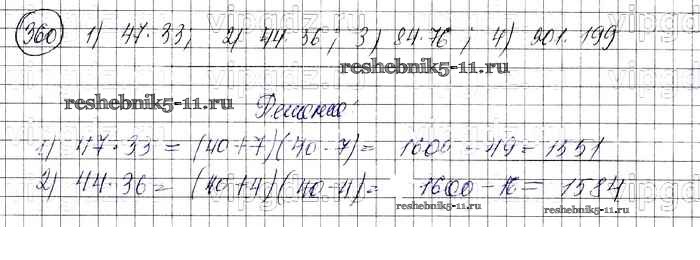 360 1) 47·33; 2) 44·36; 3) 84·76; 4) 201·199
reshebnik5-11.ru
reshebnik5-11.ru
Решение
1) 47·33 = (40+7)(40-7) = 1600 - 49 = 1551
2) 44·36 = (40+4)(40-4) = 1600 - 16 = 1584
reshebnik5-11.ru
reshebnik5-11.ru